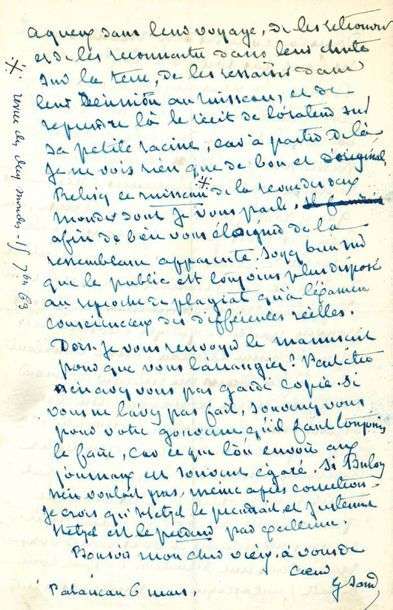 aqueux dans leur voyage, de les retrouver
et de les reconnaitre dans leur chute
sur la terre, de les ressaisir dans
leur Réunion au ruisseau, et de
reprendre là le récit de l'orateur sur
sa petite racine, car à partir de là
je ne vois rien que de bon et d'original.
Relisez ce ruisseau ·X· de la revue des deux
mondes dont je vous parle,
afin de bien vous éloigner de la
ressemblance apparente. Soyez bien sûr
que le public est toujours plus disposé
au reproche de plagiat qu'à l'examen
consciencieux des différences réelles.
Dois-je vous renvoyer le manuscrit
pour que vous l'arrangiez? Peut être
n'en avez vous pas gardé copie. Si
vous ne l'avez pas fait, souvenez vous
pour votre gouverne qu'il faut toujours
le faire, car ce que l'on envoie aux
journaux est souvent égaré. Si Buloz
n'en voulait pas, même après correction
je crois qu'Hetzel le prendrait et justement
Hetzel est le par excellence.
Bonsoir mon cher, à vous de
cœur
G Sand
Palaiseau 6 mars.
·X· revue des deux mondes - 15 7bre 63